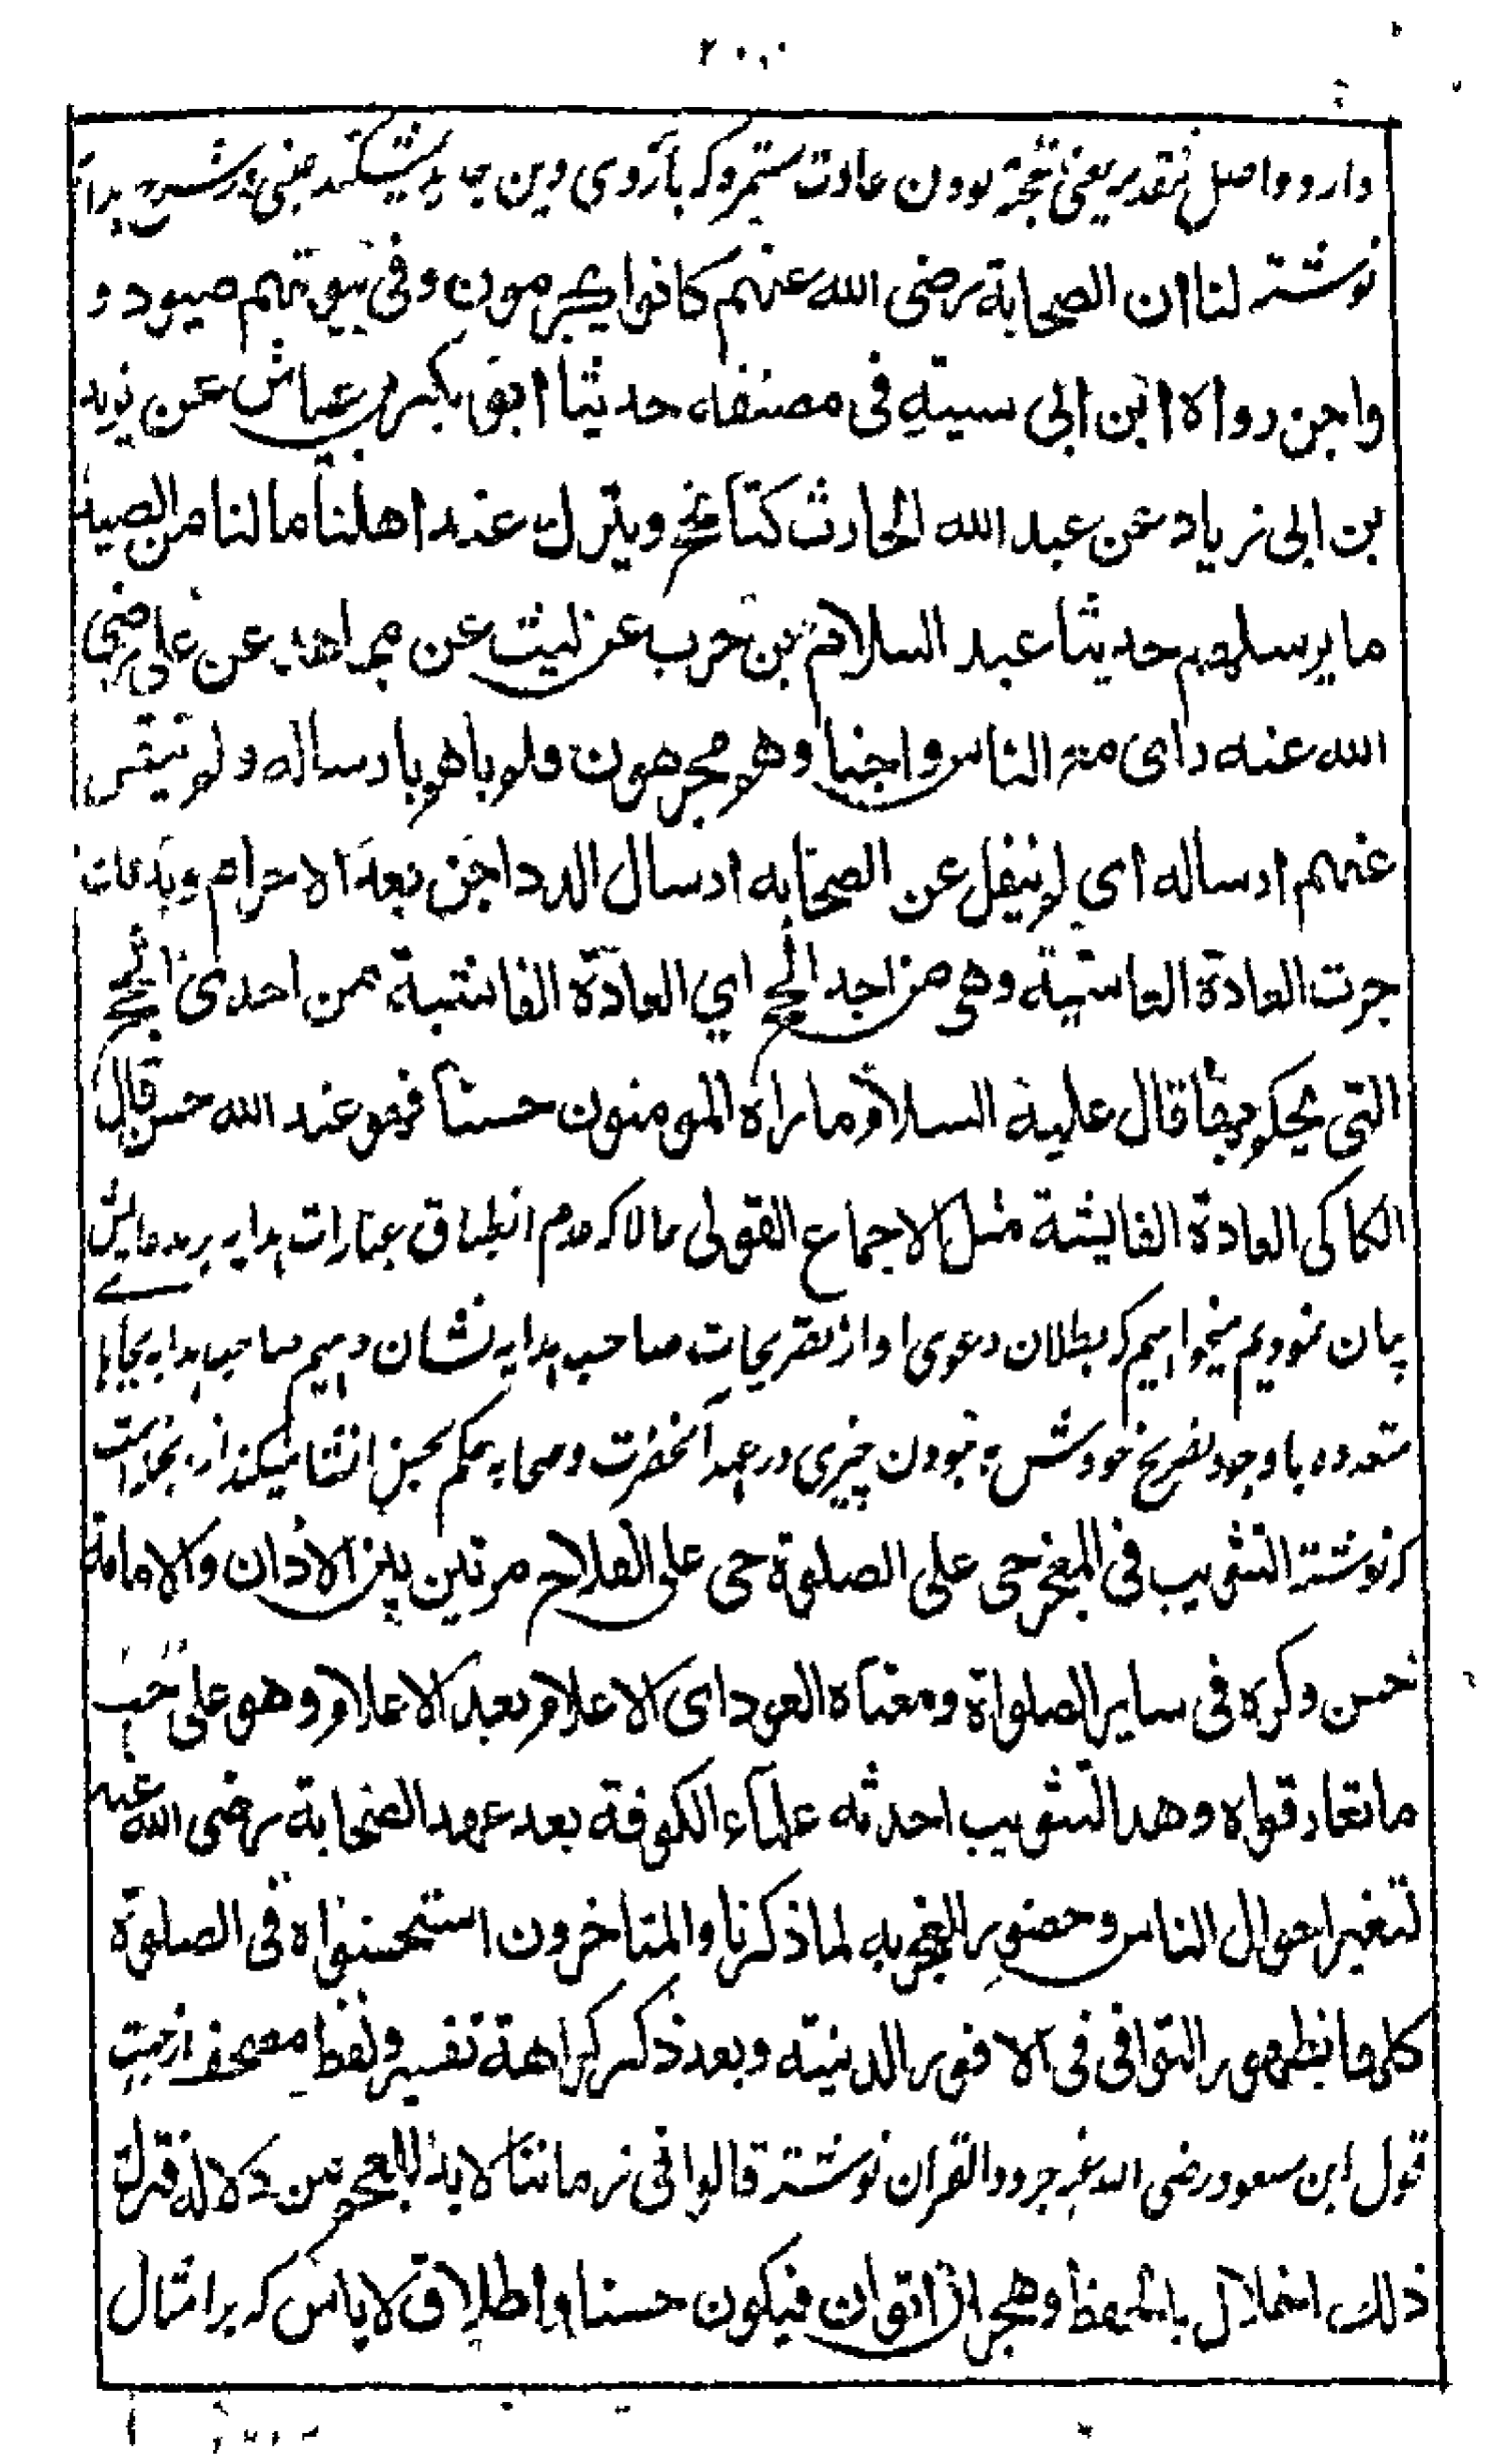 دارد و اصل تقدیر یعنی حجة بودن عادت مستمره که بازوی دین
نوشته لنا ان الصحابة رضی الله عنهم کانوا یحرمون وفی بیوتهم صیود و
واجن رواه ابن ابی سیبة فی مصنفه حدیثنا ابو بکر بن عیاش عن یزید
بن ابی زیاد عن عبد الله الحارث کنا نحج ویترك عند اهلنا ما لنا من الصید
ما یرسلهم حدیثنا عبد السلام بن حرب عن لیث عن مجاهد عن علی رضی
الله عنه رای مع الناس واجنا وهو محرمون فلم یاهر بارساله ولم ینقل
عنهم ارساله ای لم ینقل عن الصحابه ارسال الدواجن بعد الاحرام وبذلك
جرت العادة الفاشیة وهی من احد الحج ای العادة الفاشیة من احدی الحج
التی یحکم بها قال علیه السلام ما راه المومنون حسنا فهو عند الله حسن قال
الکاکی العادة الفاشیة مثل الاجماع القولی حالا که عدم انطباق عبارات هدایه بر مدعایش
بیان نمودیم میخواهیم که بطلان دعوی او از تصریحات صاحب هدایه نشان دهیم صاحب هدایه بجاها
متعدده با وجود تصریح خودش به نبودن چیزی در عهد آنحضرت و صحابه حکم بحسن انشا میکند از بنجمله است
که نوشته التثویب فی الفجر حی علی الصلوة حی علی الفلاح مرتین بین الاذان والاقامة
حسن وکره فی سایر الصلواة ومعناه العود ای الاعلام بعد الاعلام وهو علی حسب
ما تعارفواه وهذا التثویب احدثه علماء الکوفة بعد عهد الصحابة رضی الله عنهم
لتغیر احوال الناس وحضور الفجر به لما ذکرنا والمتاخرون استحسنواه فی الصلوة
کلها لظهور التوانی فی الامور الدینیه وبعد ذکر کراهة تفسیر ولفظ مصحف از جهت
قول ابن مسعود رضی الله عنه جردوا القران نوشته قالوا فی زماننا لابد للعجم من دلالة فترك
ذلك اخلال بالحفظ وهجران القران فیکون حسنا واطلاق لا باس که بر امثال